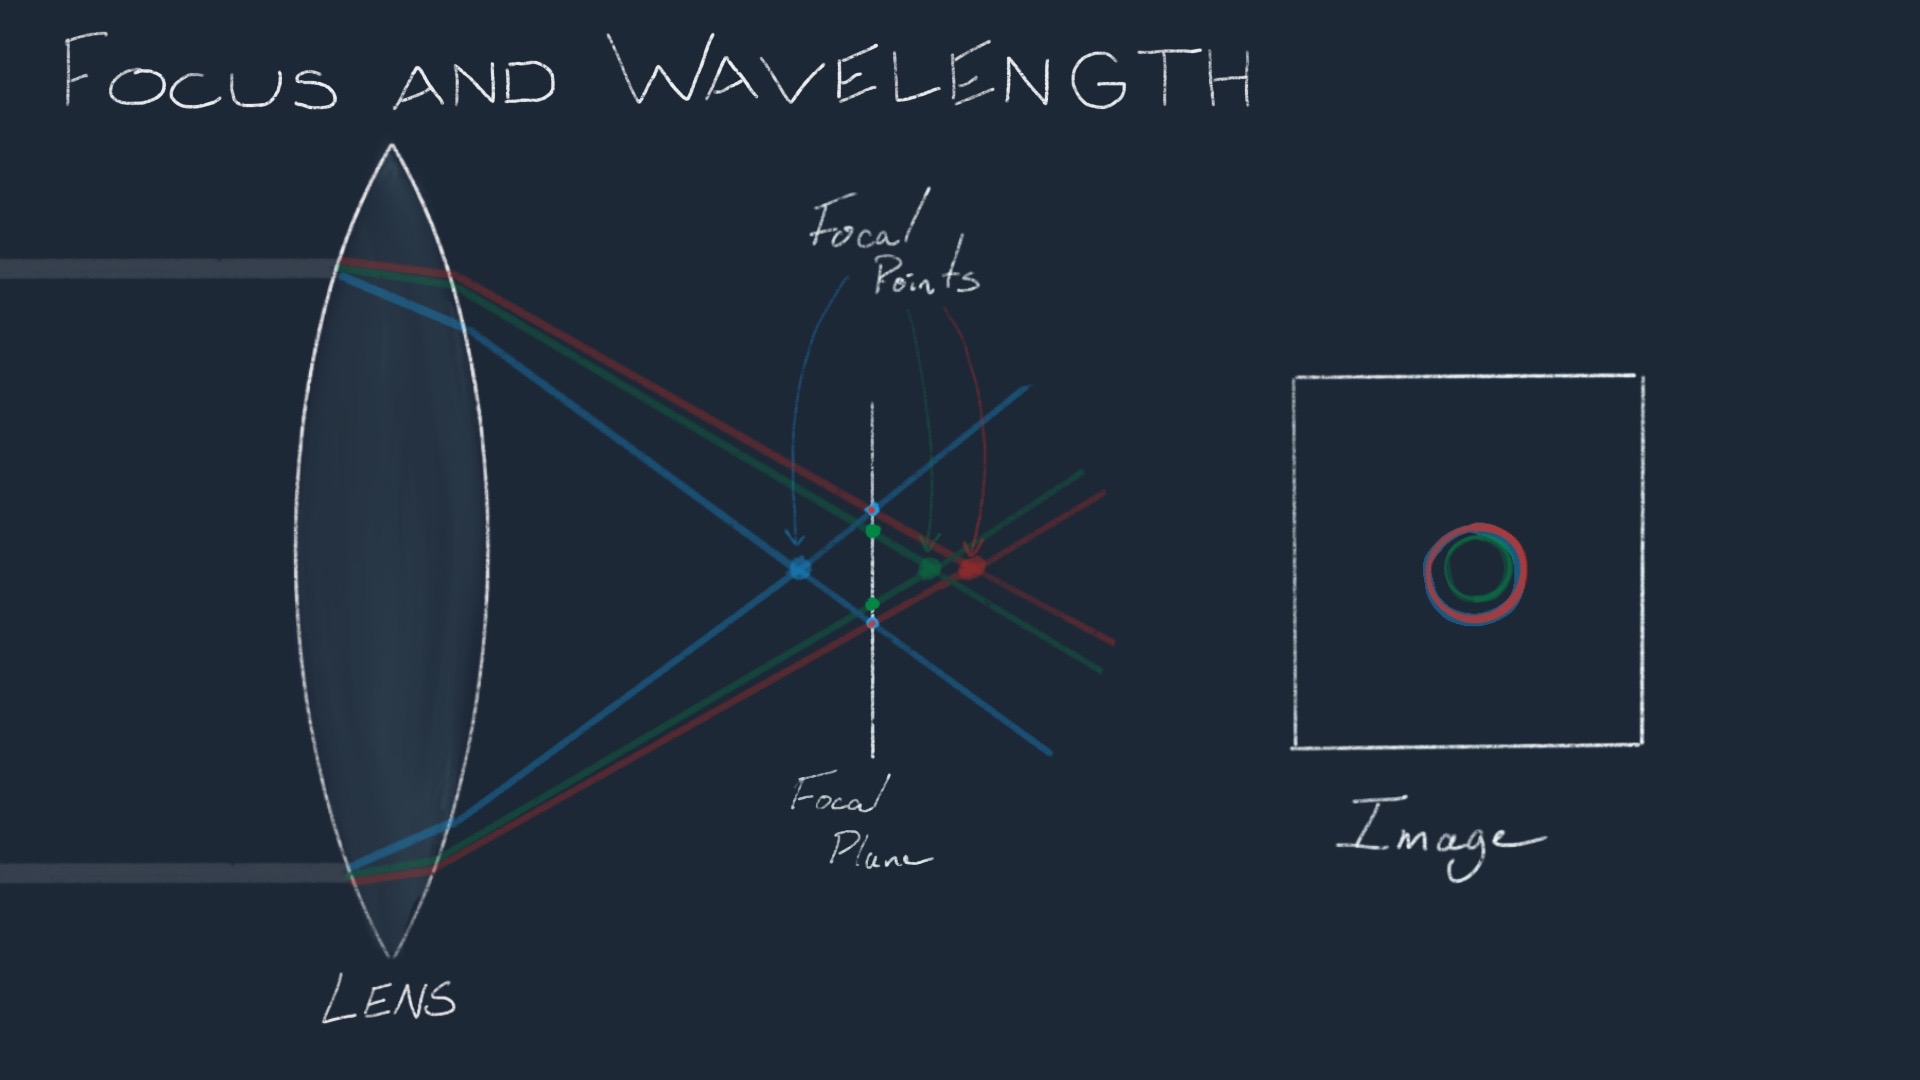 FOCUS AND WAVELENGTH
Focal
Points
Focal
Plane
Image
LENS